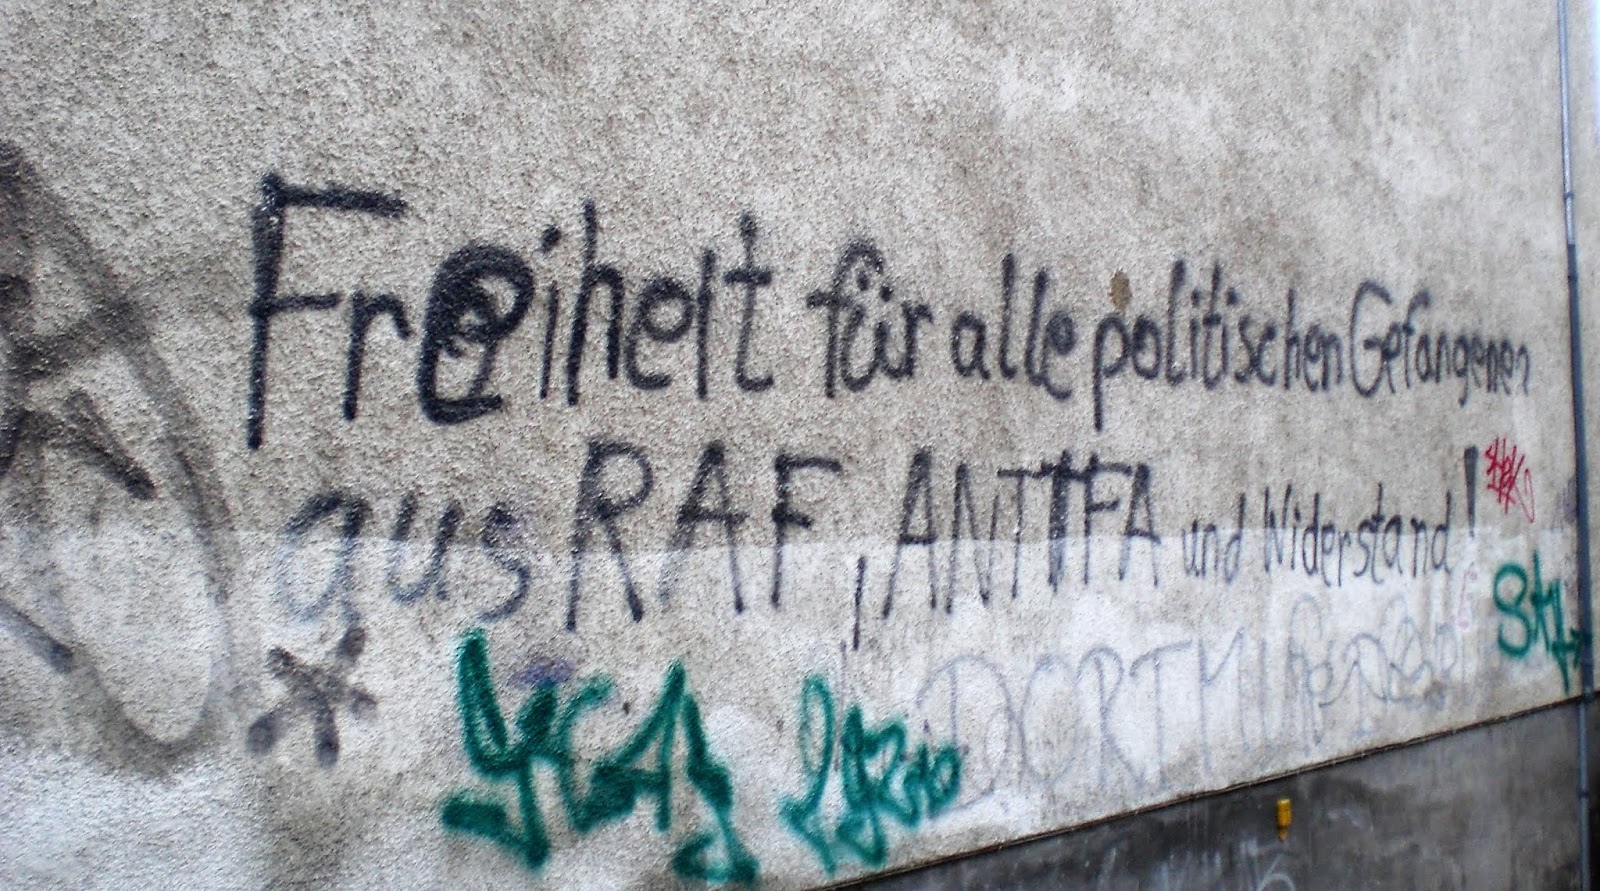 Freiheit für alle politischen Gefangenen
aus RAF, ANTIFA und Widerstand!